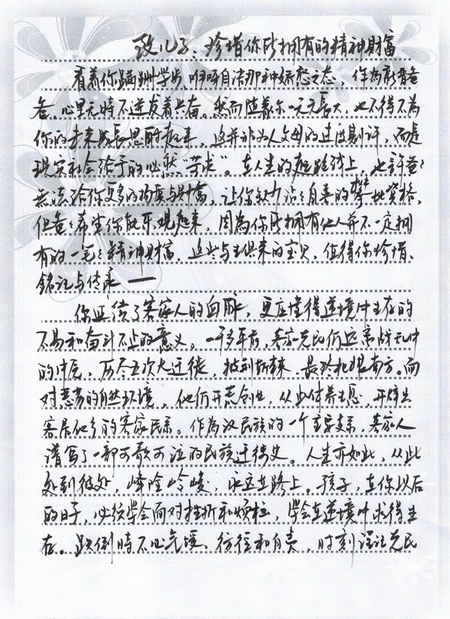 致儿子：珍惜你所拥有的精神财富
看着你蹒跚学步、咿呀自语那种娇憨之态，作为你爸
爸，心里无时不迸发着兴奋。然而随着你一天天长大，也不得不为
你的未来成长思虑起来。这并非为人父母的过度，而是
现实社会给予的必然“劳虑”。在人生的起跑线上，也许爸
无法给你更多的物质财富，让你缺少了自青的资格，
但爸希望你能乐观起来，因为你所拥有他人并不一定拥
有的一笔精神财富，这些与生俱来的宝贝，值得你珍惜、
铭记与传承——
你延续了客家人的血脉，更应懂得逆境中生存的
不易和奋斗不止的意义。一千多年前，客家先民们迫于战乱
的，历尽五次大迁徙，披荆斩棘，最终扎根南方。面
对恶劣的自然环境，他们开荒创业，从此休养生息，开辟出
客居他乡的客家民系。作为汉民族的一个重要支系，客家人
谱写了一部可歌可泣的民族迁徙史。人生亦如此，从此
处到彼处，峰险岭峻，路上。孩子，在你以后
的日子，必须学会面对挫折和烦恼，学会在逆境中求得生
存。跌倒时不必气馁、彷徨和自责，时刻谨记先民